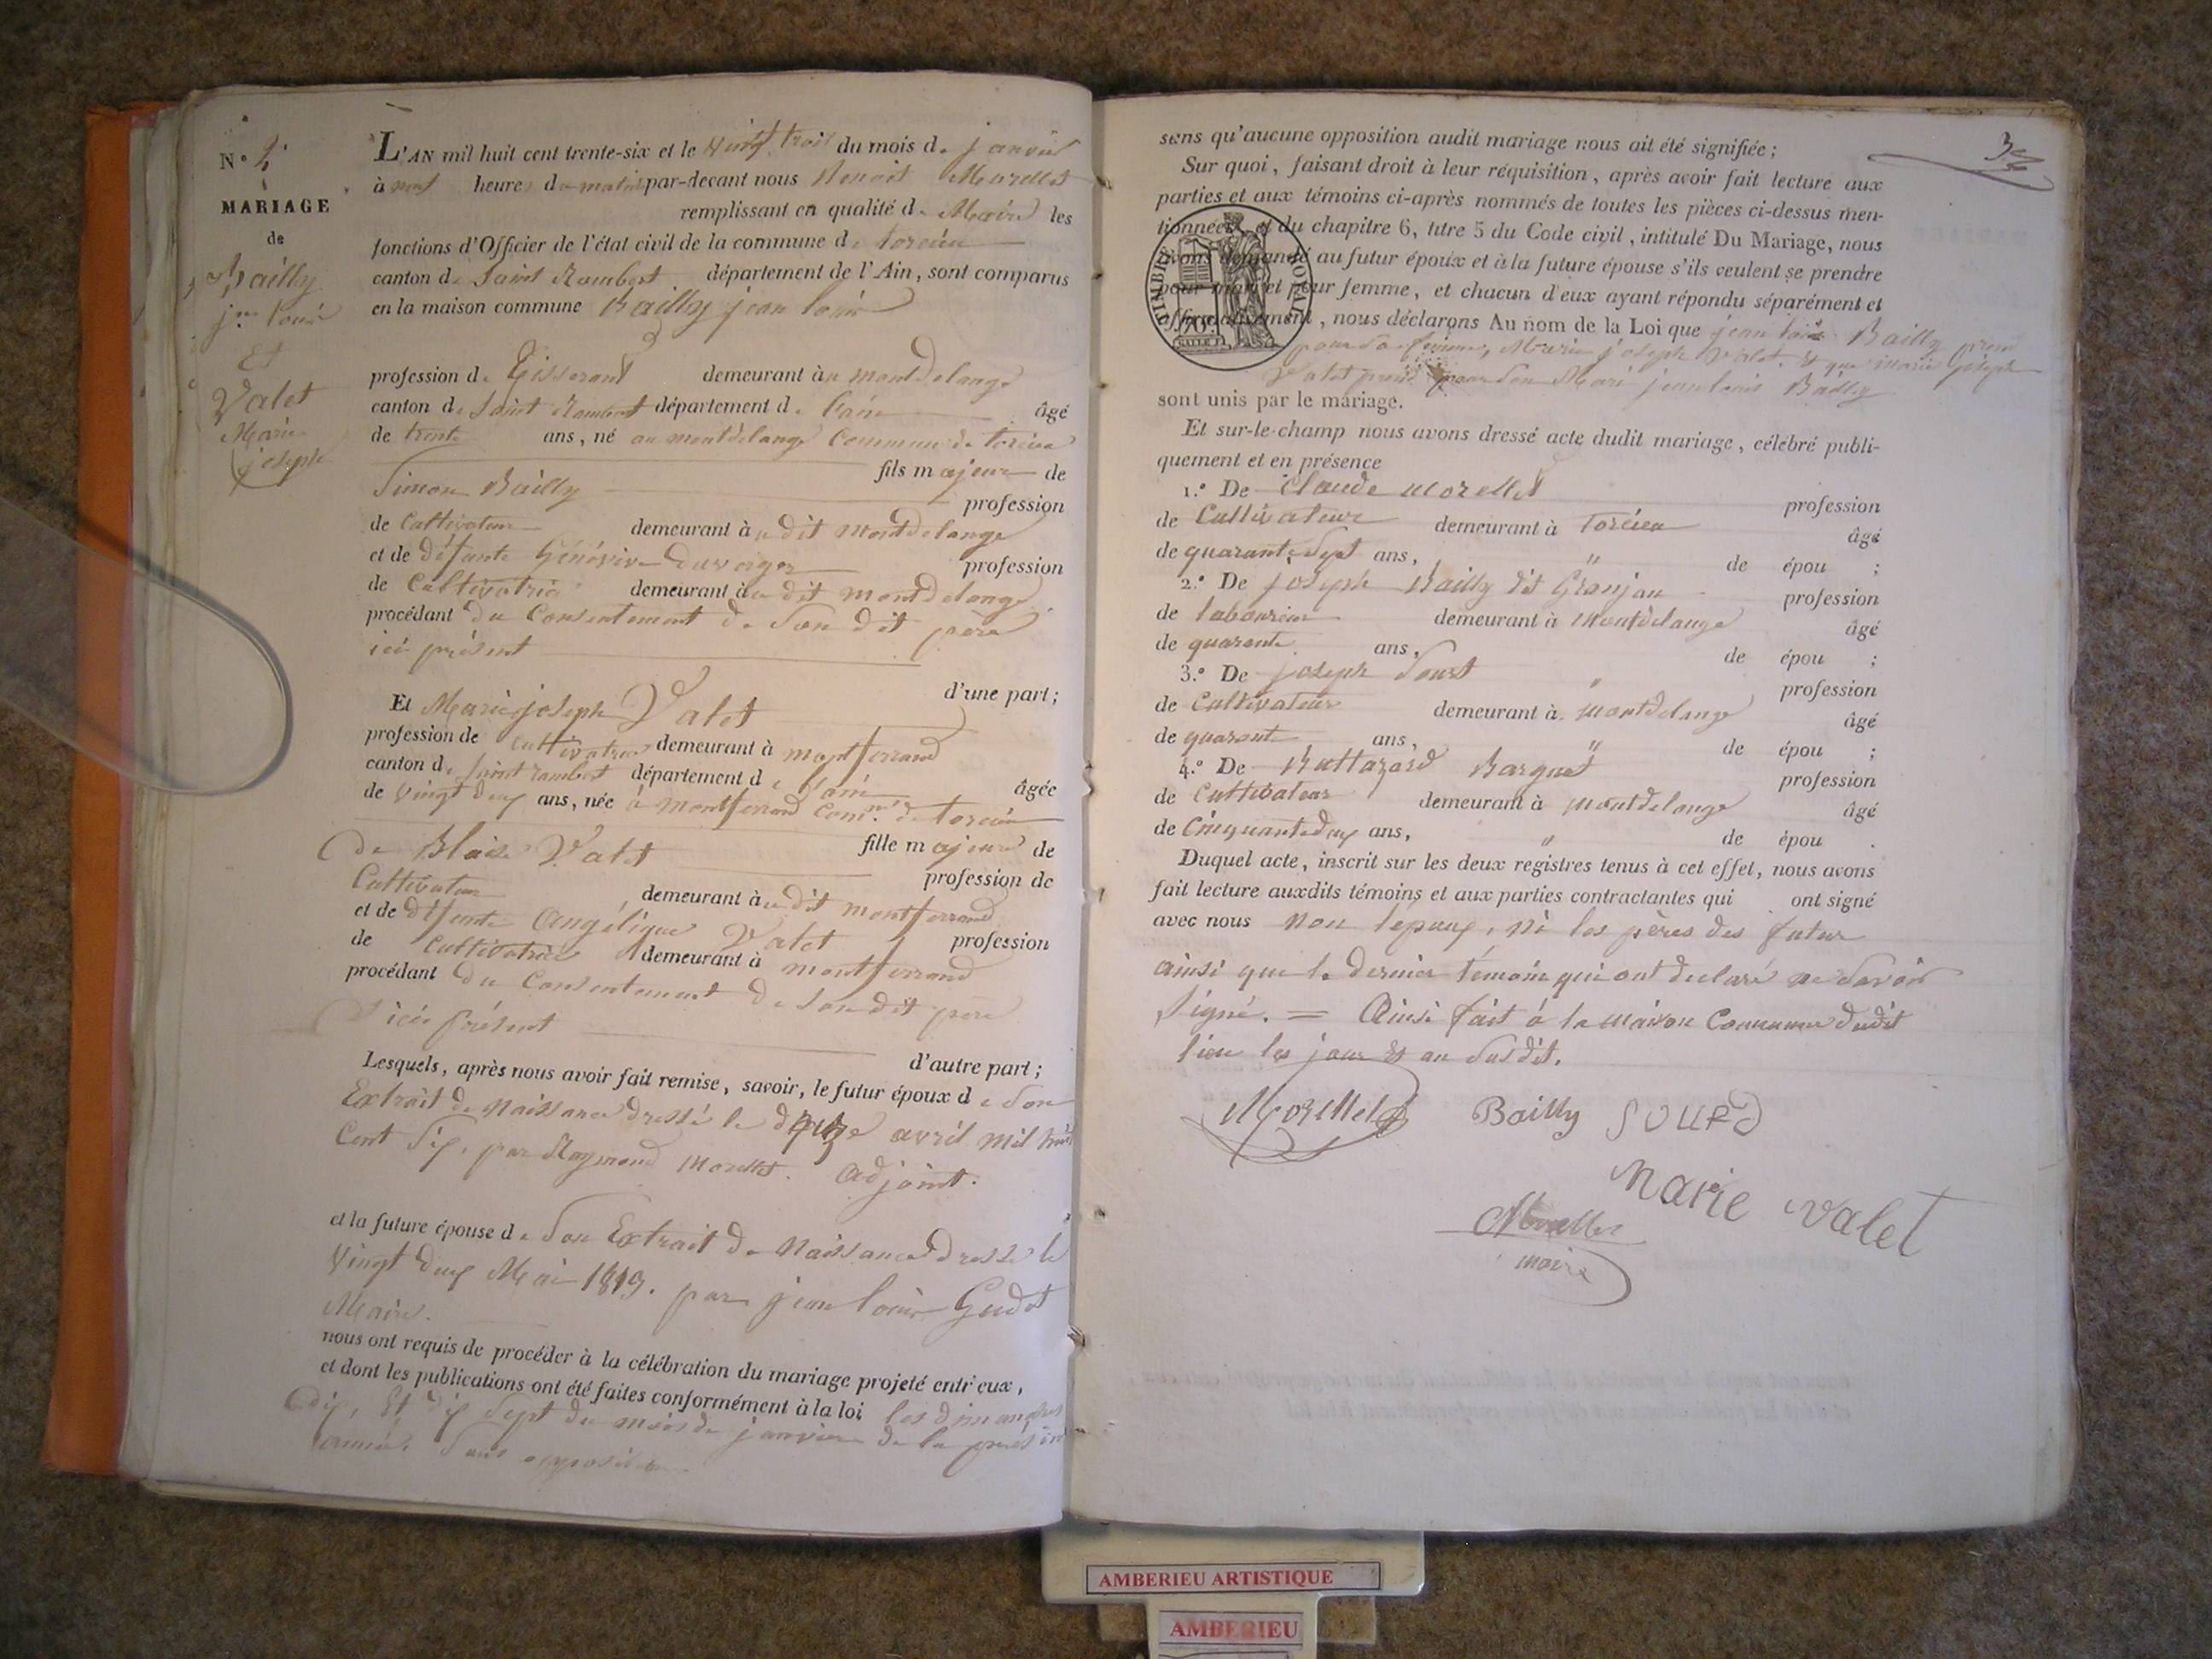 N° 2
MARIAGE
de
Bailly
jn Louis
Et
Valet
Marie
joseph
L'AN mil huit cent trente-six et le vingt trois du mois de janvier
à neuf heures du matin par-devant nous Benoit Morellet
remplissant en qualité de Maire les
fonctions d'Officier de l'état civil de la commune de torcieu
canton de Saint Rambert département de l'Ain, sont comparus
en la maison commune Bailly jean louis
profession de Tisserant demeurant au montdelange
canton de Saint Rambert département de l'ain âgé
de trente ans, né au montdelange Commune de torcieu
fils majeur de
Simon Bailly
profession
de Cultivateur demeurant au dit montdelange
et de défunte Généviève Duverger profession
de Cultivatrice demeurant au dit montdelange
procédant du Consentement de Son dit père
ici présent
d'une part;
Et Marie joseph Valet
profession de Cultivatrice demeurant à montferrand
canton de Saint rambert département de l'ain âgée
de vingt deux ans, née à montferrand Comne de torcieu
fille majeure de
de Blaise Valet
profession de
Cultivateur demeurant au dit montferrand
et de défunte Angélique Valet profession
de Cultivatrice demeurant à montferrand
procédant du Consentement de Son dit père
ici présent
d'autre part;
Lesquels, après nous avoir fait remise, savoir, le futur époux de Son
Extrait de Naissance dressé le avril mil huit
Cent Six, par Raymond Morellet. adjoint.
et la future épouse de Son Extrait de Naissance dressé le
vingt deux Mai 1813. par jean louis Gudet
Maire.
nous ont requis de procéder à la célébration du mariage projeté entr'eux,
et dont les publications ont été faites conformément à la loi les dimanches
dix, Et dix Sept du mois de janvier de la présente
année. Sans opposition.
sans qu'aucune opposition audit mariage nous ait été signifiée;
Sur quoi, faisant droit à leur réquisition, après avoir fait lecture aux
parties et aux témoins ci-après nommés de toutes les pièces ci-dessus men-
tionnées, et du chapitre 6, titre 5 du Code civil, intitulé Du Mariage, nous
avons demandé au futur époux et à la future épouse s'ils veulent se prendre
pour mari et pour femme, et chacun d'eux ayant répondu séparément et
affirmativement, nous déclarons Au nom de la Loi que jean louis Bailly prend
pour Sa femme, Marie joseph Valet. Et que marie joseph
Valet prend pour Son Mari jean louis Bailly
TIMBRE ROYAL
70c
sont unis par le mariage.
Et sur-le-champ nous avons dressé acte dudit mariage, célébré publi-
quement et en présence
1.° De Claude Morellet profession
de Cultivateur demeurant à Torcieu âgé
de quarante Sept ans, " de épou ;
2.° De joseph Bailly dit Granjan profession
de laboureur demeurant à Montdelange âgé
de quarante ans, " de épou ;
3.° De joseph Sourd profession
de Cultivateur demeurant à montdelange âgé
de quarante ans, " de épou ;
4.° De Baltazard Barquet profession
de Cultivateur demeurant à montdelange âgé
de Cinquante deux ans, " de épou .
Duquel acte, inscrit sur les deux registres tenus à cet effet, nous avons
fait lecture auxdits témoins et aux parties contractantes qui ont signé
avec nous Non l'époux, ni les pères des futur
ainsi que le dernier témoin qui ont déclaré ne Savoir
Signé. = Ainsi fait à la maison Commune dudit
lieu les jour Et an Susdit.
Morellet Bailly SOURD
Marie valet
Morellet
maire
AMBERIEU ARTISTIQUE
AMBERIEU